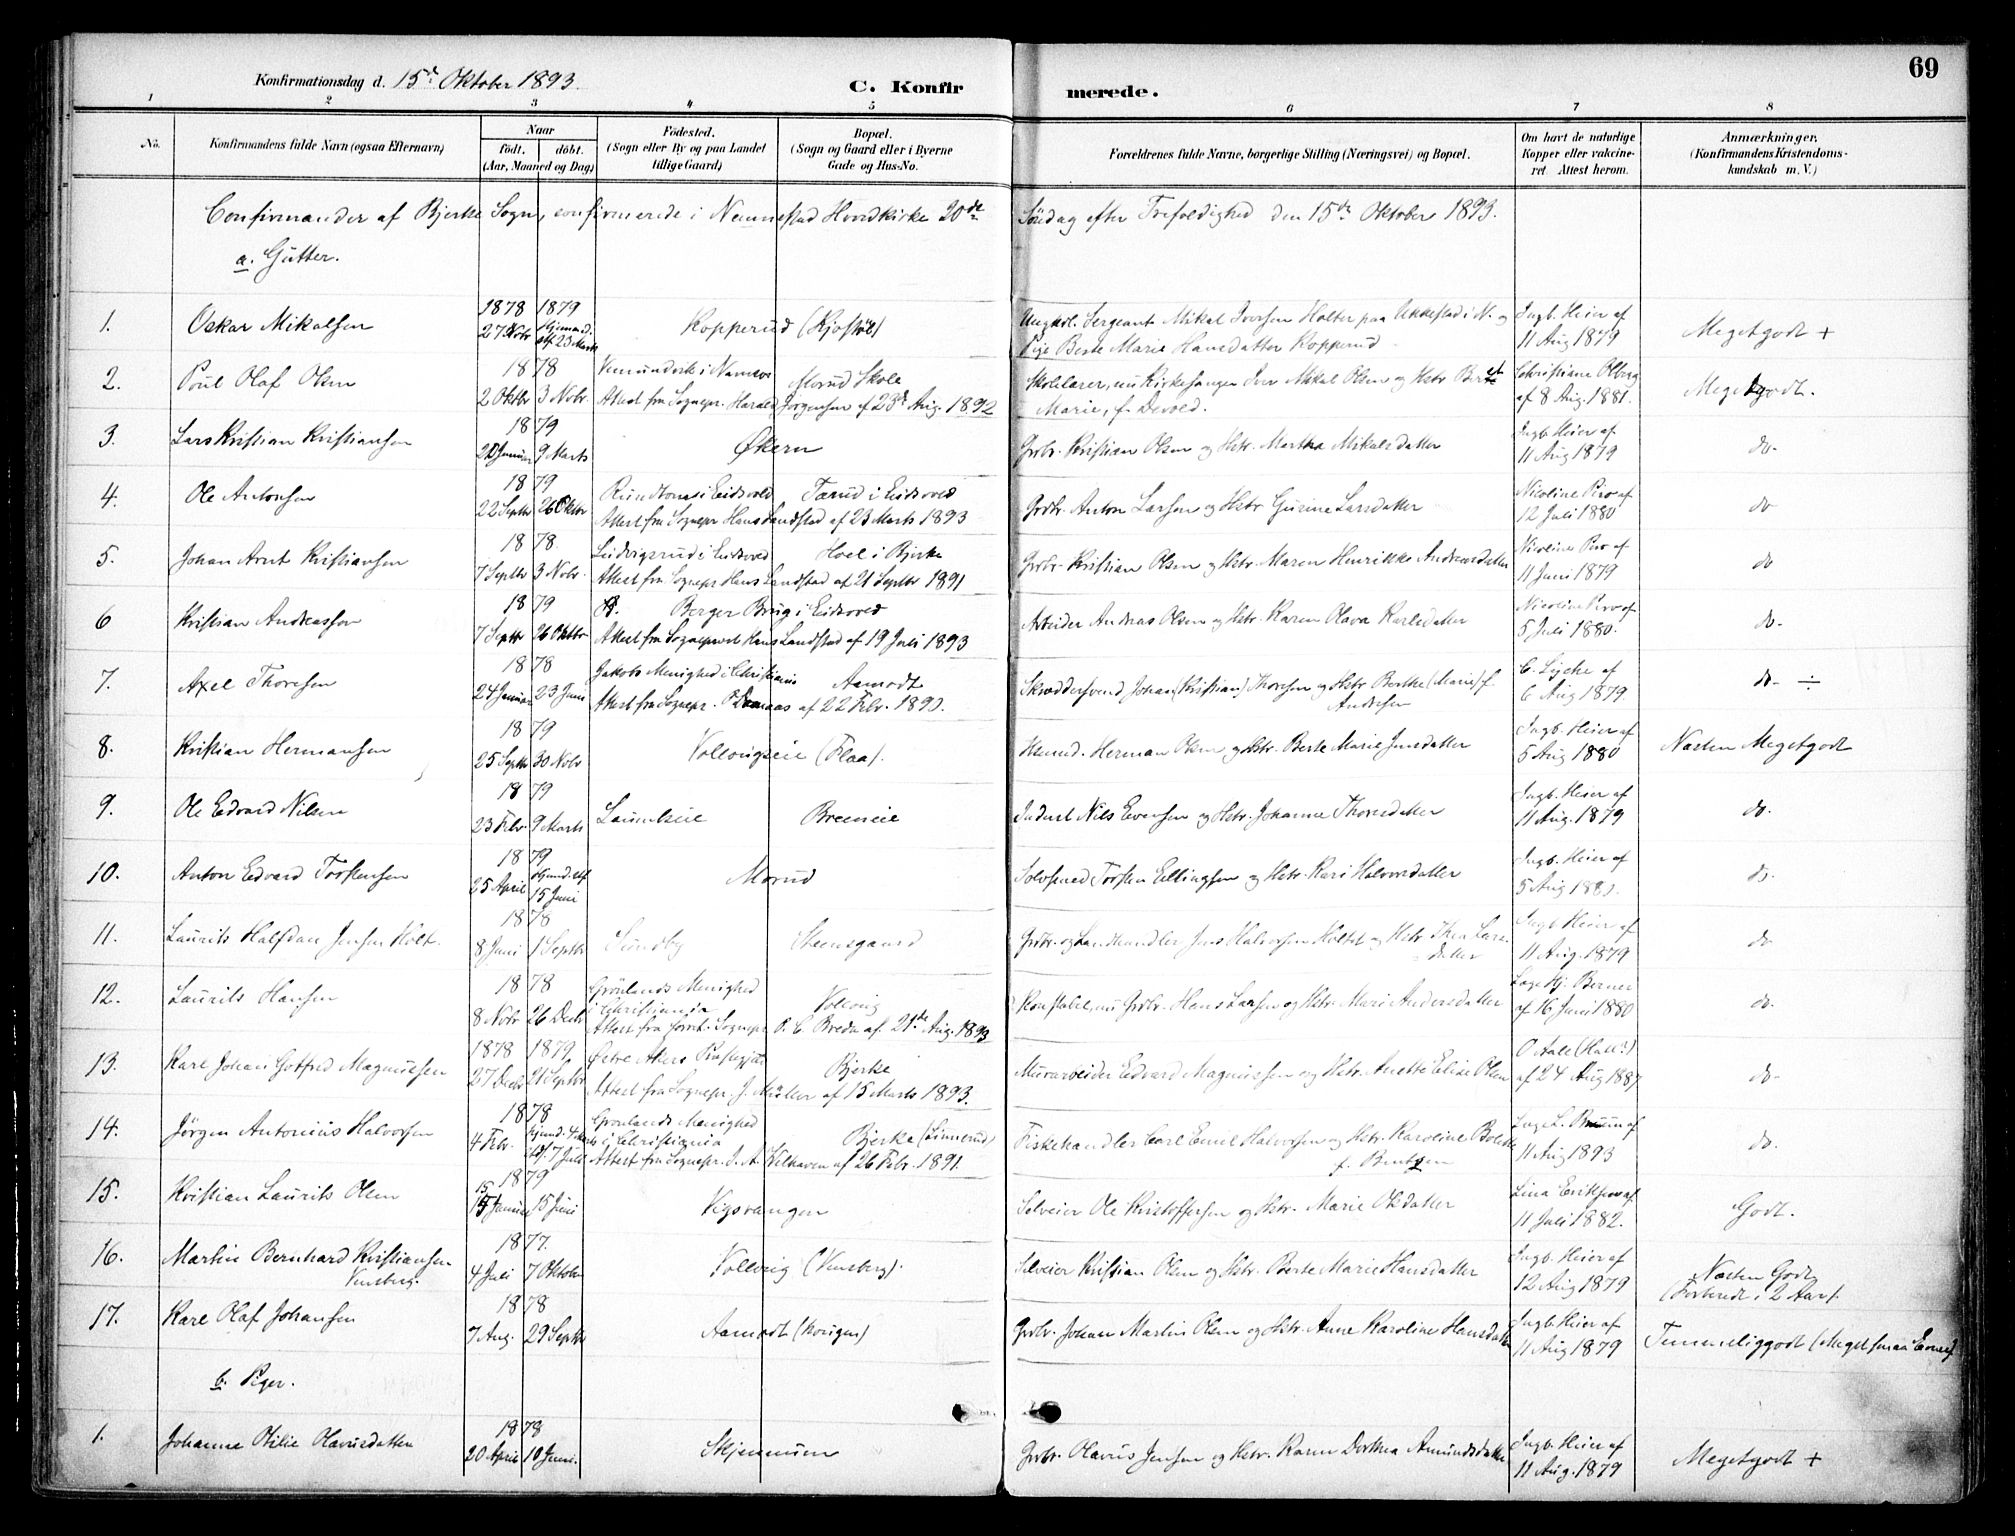 69
Konfirmationsdag d. 15de Oktober 1893.
C. Konfirmerede.
1 2 3 4 5 6 7 8
No.
Konfirmandens fulde Navn (ogsaa Efternavn)
Naar
födt. döbt.
(Aar, Maaned og Dag)
Födested.
(Sogn eller By og paa Landet
tillige Gaard)
Bopæl.
(Sogn og Gaard eller i Byerne
Gade og Hus-No.
Forældrenes fulde Navne, borgerlige Stilling (Næringsvei) og Bopæl.
Om havt de naturlige
Kopper eller vakcine-
ret. Attest herom.
Anmærkninger.
(Konfirmandens Kristendoms-
kundskab m. V.)
Confirmander af Bjerke Sogn, confirmerede i Nannestad Hovdkirke 20de Söndag efter Trefoldighed den 15de Oktober 1893.
a. Gutter.
1. Oskar Mikalsen 1878 27 Nobr 1879 Hjemmed. 23 Marts Kopperud (Kjos) Ungkrl. Sergeant Mikal Iversen Holter paa i N. og
Pige Berte Marie Hansdatter Kopperud. Ingb. Heier af
11 Aug 1879 Megetgodt +
2. Poul Olaf Olsen 1878 2 Oktbr 3 Nobr. i Namsos Morud Skole
Attest fra Sognepr. Harald Jörgensen af 23de Aug. 1892 Skolelærer, nu Kirkesanger Iver Mikal Olsen og Hstr Berte
Marie, f. Devold. Christiane Olberg
af 8 Aug. 1881. Megetgodt.
3. Lars Kristian Kristiansen 1879 Januar 9 Marts Økern Grbr. Kristian Olsen og Hstr. Martha Mikalsdatter Ingb. Heier af
11 Aug 1879 do.
4. Ole Antonsen 1879 22 Septbr 26 Oktbr i Eidsvold Tærud i Eidsvold
Attest fra Sognepr Hans Landstad af 23 Marts 1893 Grdbr. Anton Larsen og Hstr Gurine Larsdatter Nicoline Piro af
12 Juli 1880 do
5. Johan Arnt Kristiansen 1878 7 Septbr 3 Nobr. Ludvigsrud i Eidsvold Hoel i Bjerke
Attest fra Sognepr Hans Landstad af 21 Septbr 1891 Grbr. Kristian Olsen og Hstr. Maren Henrikke Andreasdatter Nicoline Piro af
11 Juni 1879 do
6 Kristian Andreassen 1879 7 Septbr 26 Oktbr Berger Brug i Eidsvold
Attest fra Sogneprest Hans Landstad af 19 Juli 1893 Arbeider Andreas Olsen og Hstr. Karen Olava Karlsdatter Nicoline Piro af
5 Juli 1880. do.
7. Axel Thoresen 1878 24 Januar 23 Juni Jakobs Menighed i Christiania Aamodt
Attest fra Sognepr. af 22 Febr. 1893. Skræddersvend Johan (Kristian) Thoresen og Hstr Berthe (Marie) f.
Andresen C. Lyche af
6 Aug 1879. do. ÷
8. Kristian Hermansen 1879 25 Septbr 30 Nobr Vollaugseie (Flaa). Husmd. Herman Olsen og Hstr. Berte Marie Jensdatter Ingb. Heier af
5 Aug 1880 Næsten Megetgodt
9. Ole Edvard Nilsen 1879 23 Febr. 9 Marts Breeneie Inderst Nils Evensen og Hstr. Johanne Thoresdatter Ingb. Heier af
11 Aug. 1879 do.
10. Anton Edvard Torstensen 1879 25 April Hjemd. 15 Juni Morud Selveier Torsten Ellingsen og Hstr. Kari Halvorsdatter Ingb. Heier af
5 Aug do.
11. Laurits Halfdan Jensen Holt. 1878 8 Juni 1 Septbr Sundby Steensgaard Grdbr. og Landhandler Jens Halvorsen Holtet og Hstr Thea Lars-
datter Ingb Heier af
11 Aug. 1879 do
12. Laurits Hansen 1878 8 Nobr 26 Decbr Grönlands Menighed
i Christiania Vollaug
Attest fra Sognepr O. C. Breda af 21de Aug. 1893 Konstabel, nu Grdbr. Hans Larsen og Hstr. Mari Andersdatter Læge Hj. Berner
af 16 Juni 1880 do.
13. Karl Johan Gotfred Magnussen 1878 27 Decbr 1879 21 Septbr Østre Akers Prestegjæld Bjerke
Attest fra Sognepr. J. Müller af 15 Marts 1893. Murarbeider Edvard Magnussen og Hstr. Anette Elise Olsen O Aale
af 24 Aug 1887 do.
14. Jörgen Antonius Halvorsen 1878 4 Febr. Hjemd. 4 Marts 7 Juli Grönlands Menighed
i Christiania Bjerke (Linnerud)
Attest fra Sognepr. J. A. Welhaven af 26 Febr. 1891. Fiskehandler Carl Emil Halvorsen og Hstr. Karoline
f. Bentzen Læge L. Bruun af
11 Aug 1893 do.
15. Kristian Laurits Olsen 1879 15 Januar 15 Juni Vigsvangen Selveier Ole Kristoffersen og Hstr. Marie Olsdatter Lina Eriksen af
11 Juli 1882. Godt.
16. Martin Bernhard Kristiansen
Vensberg. 1877. 4 Juli 7 Oktober Vollaug (Vensberg). Selveier Kristian Olsen og Hstr. Berte Marie Hansdatter Ingb. Heier af
12 Aug 1879 Næsten Godt
(Forberedt i 2 Aar).
17. Karl Olaf Johansen 1878 7 Aug. 29 Septbr Aamodt Grbr. Johan Martin Olsen og Hstr. Anne Karoline Hansdatter Ingb Heier af
11 Aug 1879 Temmeliggodt (Meget smaa Evner).
b. Piger.
1. Johanne Otilie Olavusdatter 1878 20 April 10 Juni. Skjennum Grbr. Olavus Jensen og Hstr. Karen Dorthea Amundsdatter Ingb. Heier af
11 Aug. 1879 Megetgodt +